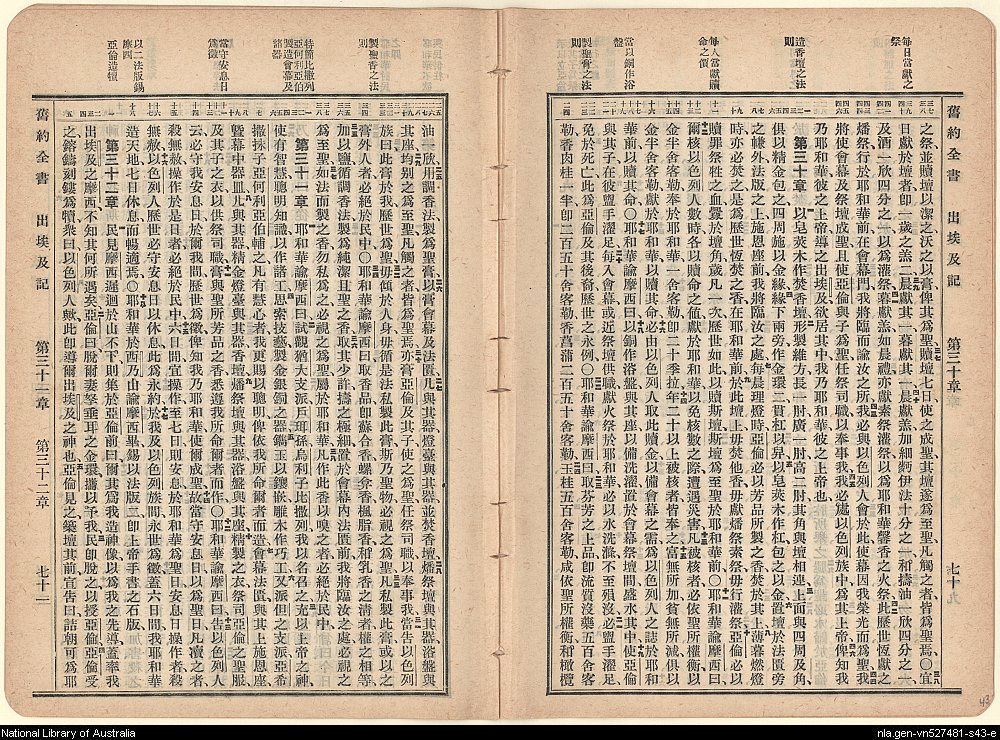 每日當獻之祭
造香壇之法則
每人當獻贖命之價
當以銅作浴盤
製聖膏之法則
舊約全書 出埃及記 第三十章
之祭並贖壇以潔之沃之以膏俾其為聖贖壇七日使之成聖其壇遂為至聖凡觸之者皆為聖焉〇宜
日獻於壇者即一歲之羔二晨獻其一暮獻其一晨獻羔加細麫伊法十分之一和擣油一欣四分之一
及酒一欣四分之一以為灌祭暮獻羔如晨禮亦獻素祭灌祭以為耶和華馨香之火祭此歷世恆獻之
燔祭行於耶和華前在會幕門我將臨而諭汝之所我必與以色列人會於此使幕因我榮光而為聖我
將使會幕及祭壇成聖且使亞倫與子為聖任祭司職以奉事我我必處以色列族中為其上帝俾知我
乃耶和華彼之上帝導之出埃及欲居其中我乃耶和華彼之上帝也
第三十章 以皂莢木作焚香壇形製維方長一肘廣一肘高二肘其角與壇相連上面與四周及角
俱以精金包之四周施以金緣緣下兩旁作金環二貫杠以舁以皂莢木作杠包之以金置壇於法匱旁
之㡘外法版之上施恩座前我將臨汝之處每晨理燈時亞倫必以芳品所製之香焚於其上薄暮燃燈
時亦必焚之是為歷世恆焚之香在耶和華前於此壇上毋焚他香毋獻燔祭素祭毋行灌祭亞倫必以
贖罪祭牲之血釁於壇角歲凡一次歷世如此以贖斯壇斯壇為至聖於耶和華前〇耶和華諭摩西曰
爾核以色列人數時各以贖命之值獻於耶和華以免核數之際遭遇災害凡被核者必依聖所權衡以
金半舍客勒獻於耶和華一舍客勒即二十季拉年二十以上被核者皆奉之富無所加貧無所減俱以
金半舍客勒奉獻於耶和華以贖其命必由以色列人取此贖金以備會幕之需為以色列人之誌於和
華前以贖其命〇耶和華諭摩西曰以銅作浴盤與其座以備洗濯置於會幕祭壇間盛水其中使亞倫
與其子在彼盥手濯足每入會幕或近祭壇供職獻火祭於耶和華則必以水洗滌不至殞沒必盥手濯足
免於死亡此為亞倫及其後裔歷世之永例〇耶和華諭摩西曰取芳芬之上品即流質沒藥五百舍客
勒香肉桂一半即二百五十舍客勒香菖蒲二百五十舍客勒玉桂五百舍客勒咸依聖所權衡和橄欖
製聖香之法則
特簡比撒列亞何利亞伯製造會幕及諸器
當守安息日為徵
以二法版錫摩西
亞倫造犢
油一欣用調香法製為聖膏以膏會幕及法匱几與其器燈臺與其器並焚香壇燔祭壇與其器浴盤與
其座均別之為至聖凡觸之者皆為聖焉亦膏亞倫及其子使之為聖任祭司職以奉事我當告以色列
族曰此膏於我歷世為聖毋傾於人身毋循是法私製此膏斯乃聖物必視之為聖凡私製此膏或以之
膏外人者必絕於民中〇耶和華諭摩西曰取香品即蘇合香螺佘香楓脂香和乳香之清者權衡相等
加以鹽循調香法製為純潔且聖之香取其少許擣之極細置於會幕內法匱前我將臨汝之處必視之
為至聖如法而製之香勿私為之必視之為聖屬於耶和華凡作此香以嗅之者必絕於民中
第三十一章 耶和華諭摩西曰試觀猶大支派戶珥孫烏利子比撒列我以名召之充以上帝之神
使有智慧聰明知識以作諸工思索技藝製金銀銅之器刻玉以鑲嵌雕木作巧工又派但之支派亞希
撒抹子亞何利亞伯輔之凡有慧心者我更賜以聰明俾依我所命爾者而造會幕法匱與其上施恩座
曁幕中器皿几與其器精金燈臺與其器香壇燔祭壇與其器浴盤與其座精製之衣祭司亞倫之聖服
及其子之衣以供祭司職膏與聖所芳品之香悉遵我所命爾者而作〇耶和華諭摩西曰告以色列人
云必守我安息日於爾我間歷世為徵俾知我乃耶和華使爾成聖故當守安息日以為聖日凡瀆之者
殺無赦操作於是日者必絕於民中六日間宜操作至七日則安息於耶和華為聖日安息日操作者殺
無赦以色列人歷世必守安息日以休息此為永約於我及以色列族間永世為徵蓋六日間我耶和華
造天地七日休息而暢適焉〇耶和華於西乃山諭摩西畢錫以法版二即上帝手書之石版
第三十二章 民見摩西遲迴於山不下則集於亞倫前曰爾其為我造神像以為我之先導蓋率我
出埃及之摩西不知其何所遇矣亞倫曰脫爾妻孥垂耳之金環攜以予我民即脫之以授亞倫亞倫受
之鎔鑄刻鏤為犢衆曰以色列人歟此即導爾出埃及之神也亞倫見之築壇其前宣告曰詰朝可為耶
舊約全書 出埃及記 第三十一章 第三十二章
National Library of Australia
nla.gen-vn527481-s43-e